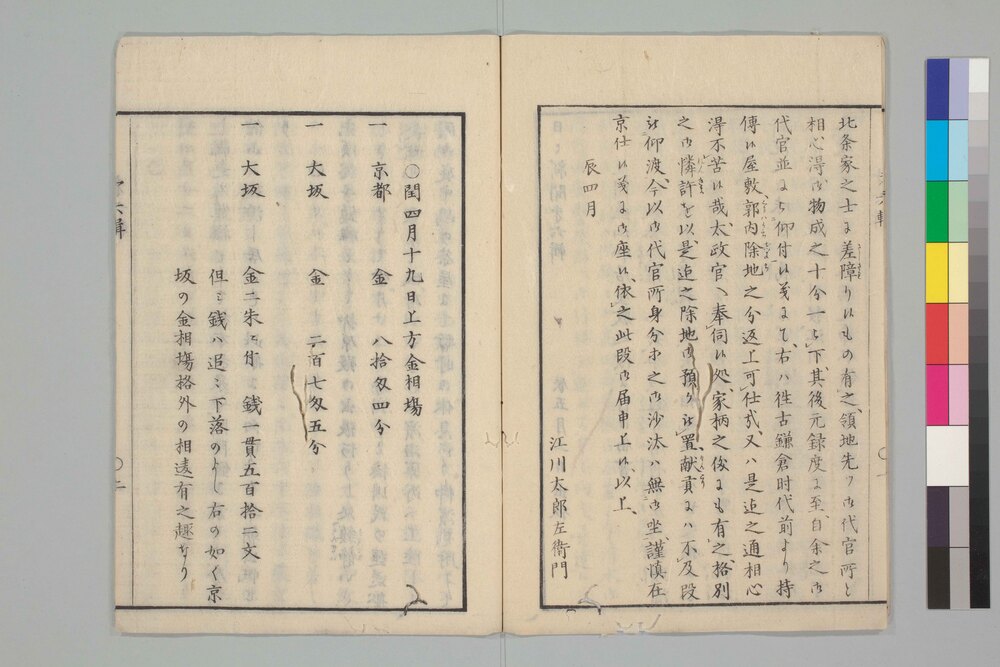 北条家之士ニ差障リ候もの有之、領地先ツ御代官所と
相心得、御物成之十分一被下、其後元録度ニ至、自余之御
代官並ニ被仰付候義にて、右ハ往古鎌倉時代前より持
傳候屋敷郭内除地之分返上可仕哉、又ハ是迄之通相心
得不苦候哉、太政官へ奉伺候処、家柄之儀ニも有之、格別
之御憐許を以是迄之除地御預ケ被置、献貢ニハ不及段
被仰渡、今以御代官所身分等之御沙汰ハ無御坐、謹慎在
京仕候義ニ御座候、依之此段御届申上候、以上、
辰四月
江川太郎左衛門
○閏四月十九日上方金相場
一 京都 金 八拾匁四分
一 大坂 金 二百七匁五分
一 大坂 金二朱ニ付 銭一貫五百拾二文
但シ銭ハ追々下落のよし右の如く京
坂の金相塲格外の相違有之趣なり